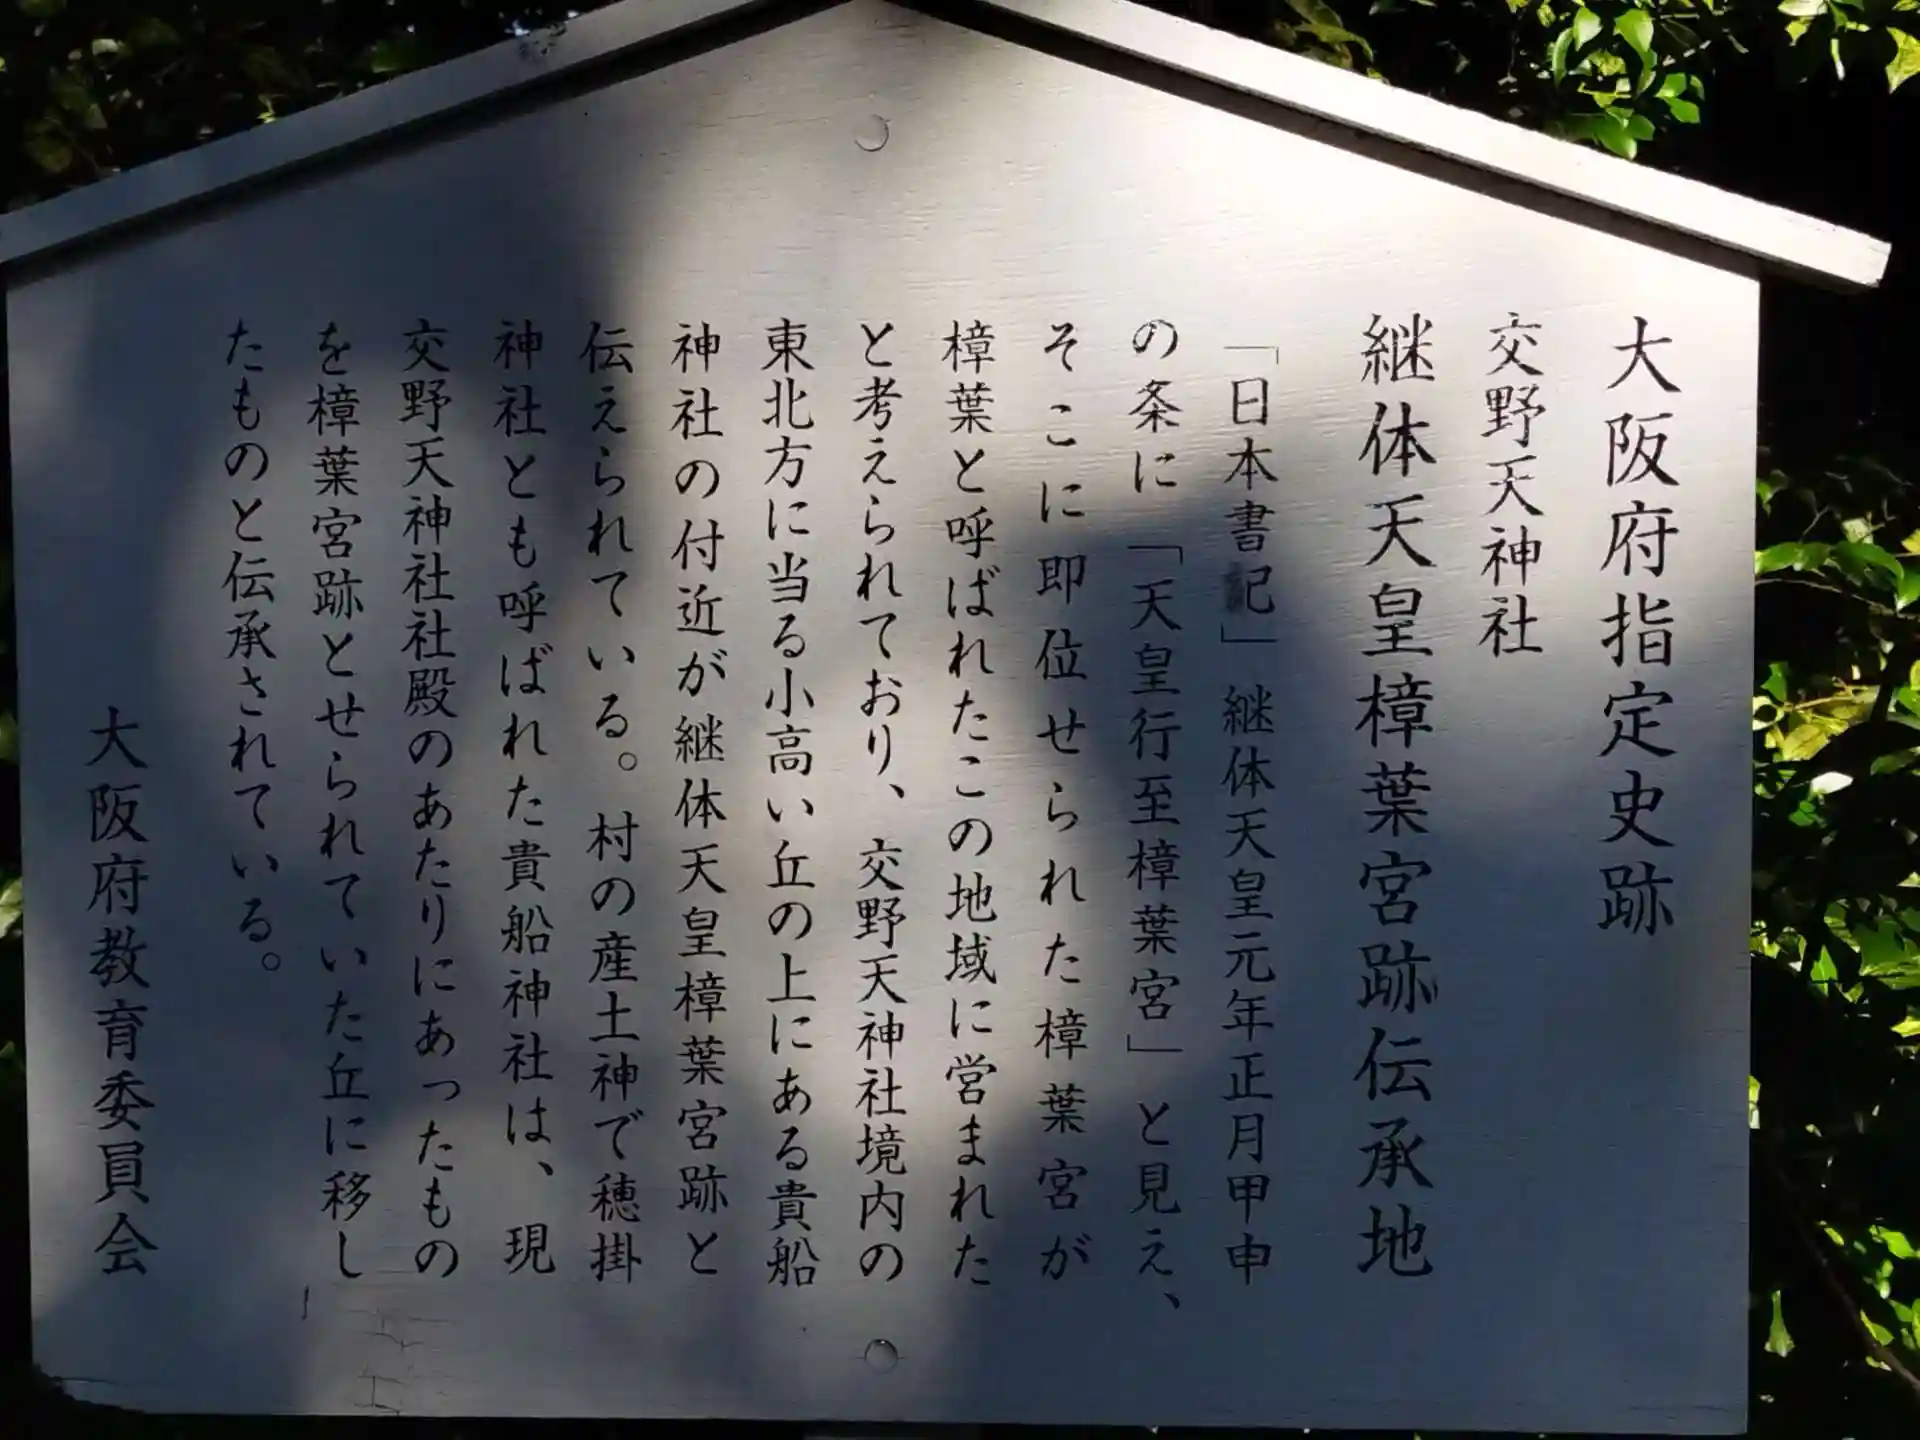 大阪府指定史跡
交野天神社
継体天皇樟葉宮跡伝承地
「日本書紀」継体天皇元年正月甲申
の条に「天皇行至樟葉宮」と見え、
そこに即位せられた樟葉宮が
樟葉と呼ばれたこの地域に営まれた
と考えられており、交野天神社境内の
東北方に当る小高い丘の上にある貴船
神社の付近が継体天皇樟葉宮跡と
伝えられている。村の産土神で穂掛
神社とも呼ばれた貴船神社は、現
交野天神社社殿のあたりにあったもの
を樟葉宮跡とせられていた丘に移し
たものと伝承されている。
大阪府教育委員会